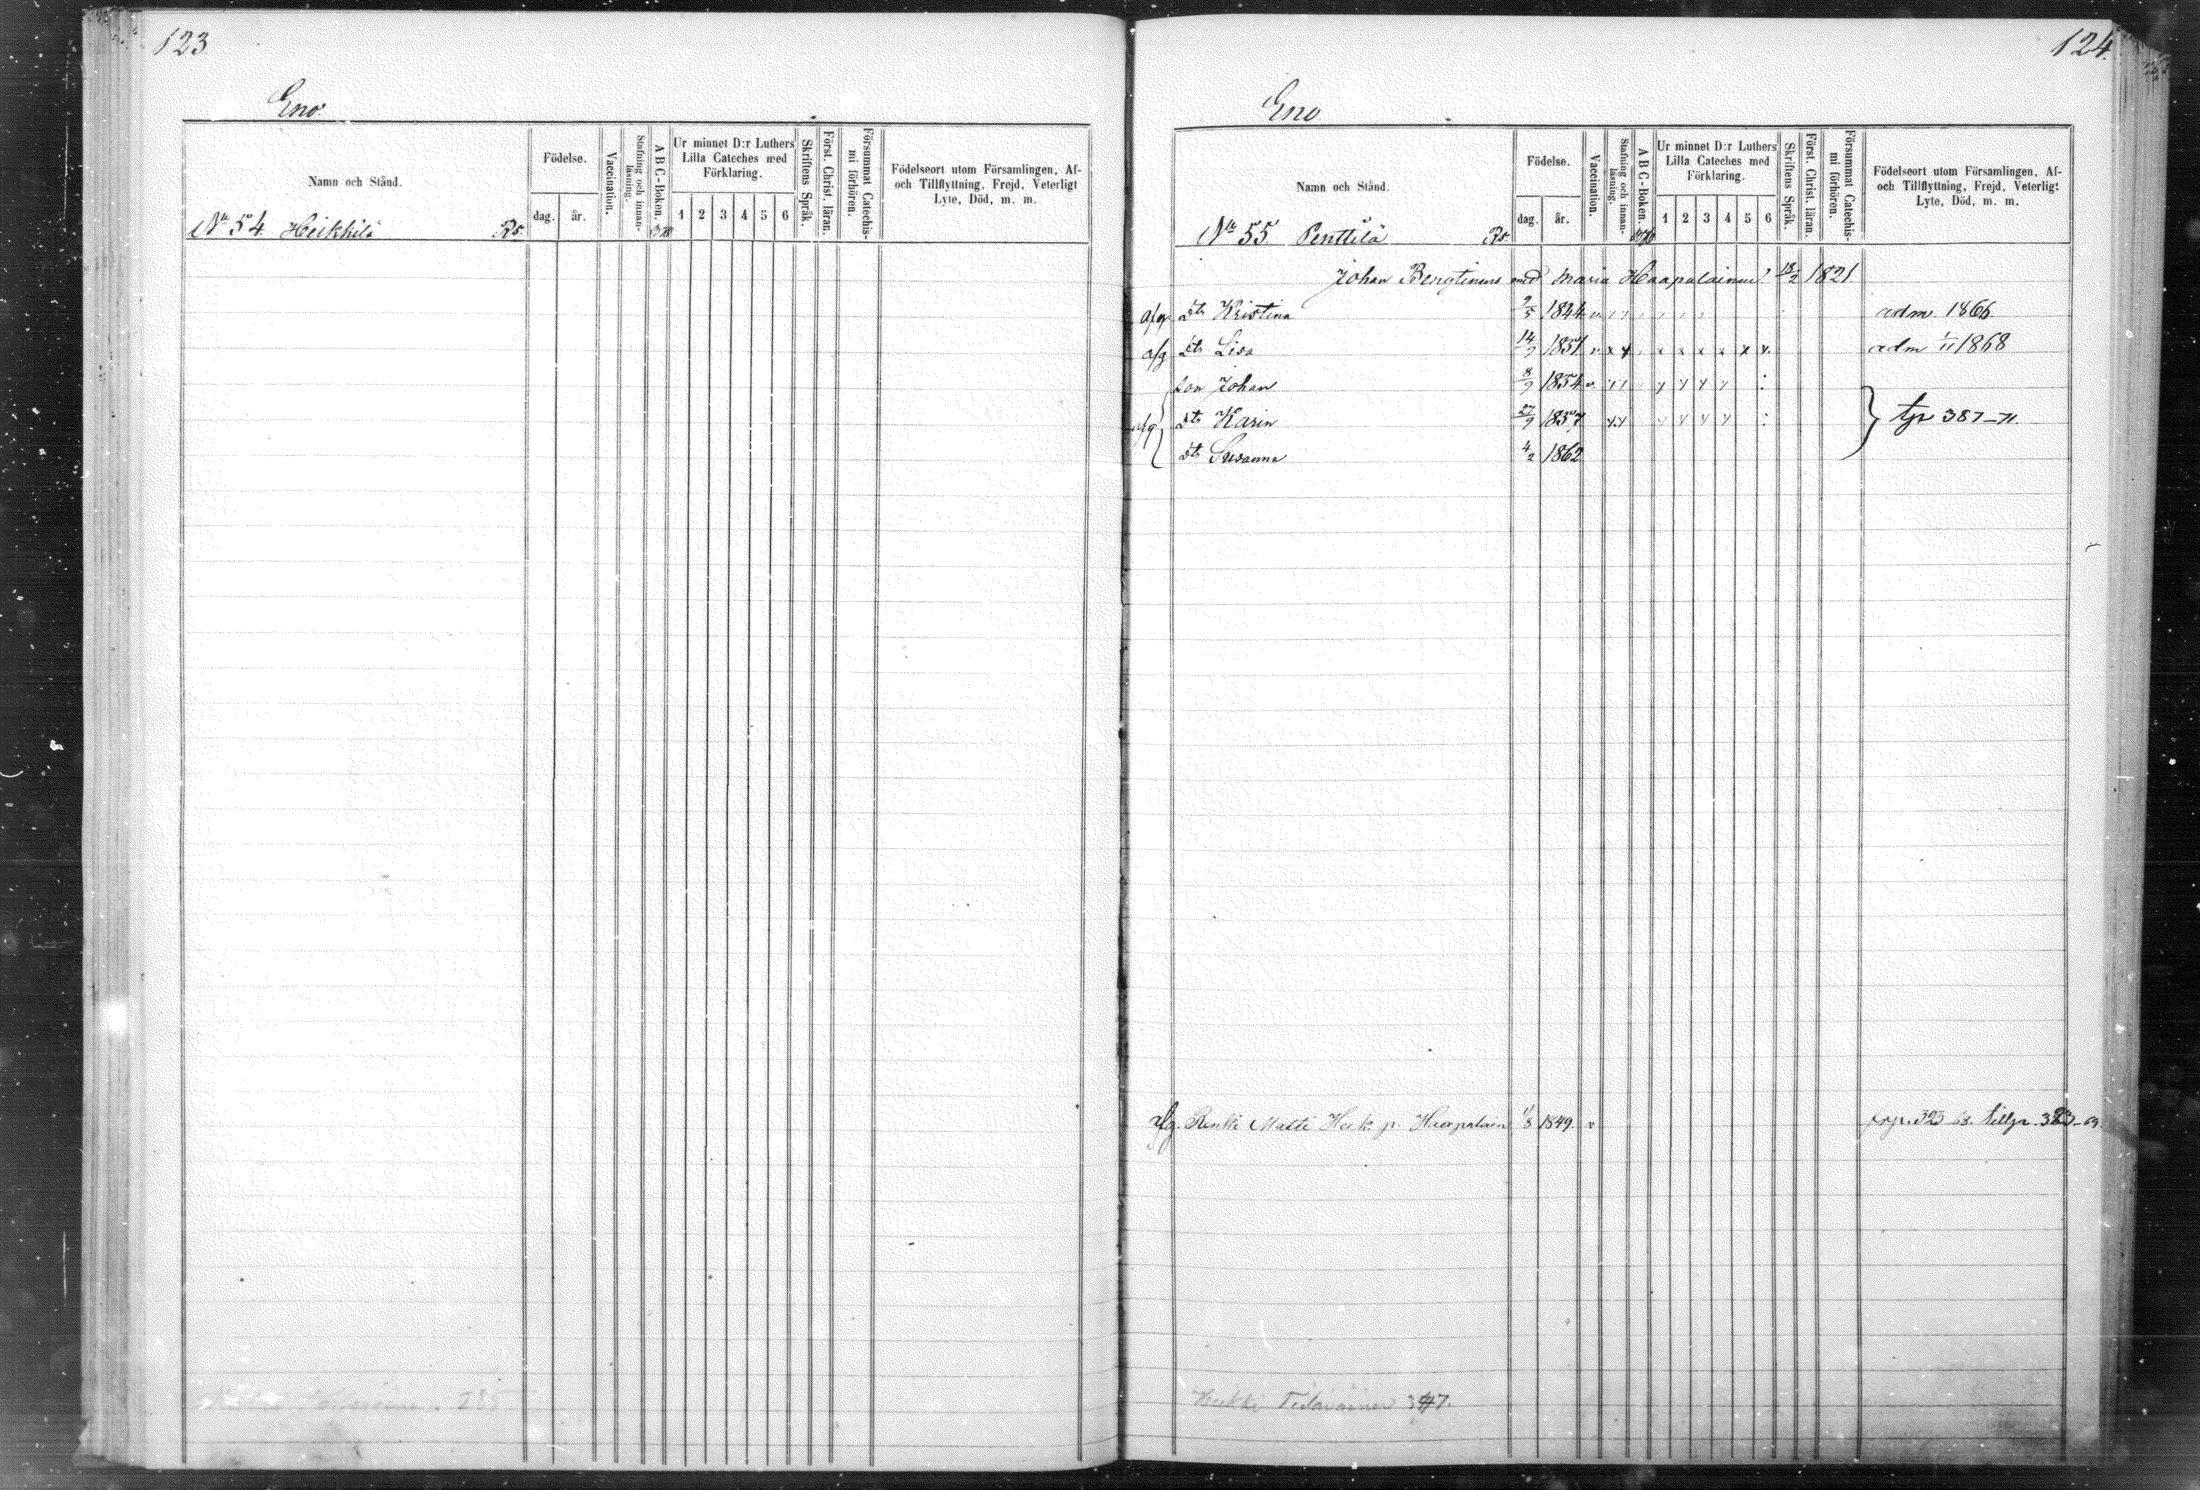 123
Eno.
Namn och Stånd.
Födelse.
dag.
år.
Vaccination.
Stafning och innan-
läsning.
A B C-Boken.
Ur minnet D:r Luthers
Lilla Cateches med
Förklaring.
1 2 3 4 5 6
Skriftens Språk.
Först. Christ. läran.
Försummat Catechis-
mi förhören.
Födelseort utom Församlingen, Af-
och Tillflyttning, Frejd, Veterligt
Lyte, Död, m. m.
No 54. Heikkilä Ro.
285
124.
Eno
Namn och Stånd.
Födelse.
dag.
år.
Vaccination.
Stafning och innan-
läsning.
A B C-Boken.
Ur minnet D:r Luthers
Lilla Cateches med
Förklaring.
1 2 3 4 5 6
Skriftens Språk.
Först. Christ. läran.
Försummat Catechis-
mi förhören.
Födelseort utom Församlingen, Af-
och Tillflyttning, Frejd, Veterligt
Lyte, Död, m. m.
No 55 Penttilä Ro.
Johan Bengtinens med Maria Haapalainen 18/2 1821.
afg dtr Kristina 9/5 1844 v adm. 1866
afg dtr Lisa 14/9 1851 v x x x x x x x adm 1/11 1868
son Johan 8/9 1854 v
afg dtr Karin 27/9 1857 tjr 387-71.
dtr Susanna 4/2 1862
afg. Renki Matti Heik. p. Haapalain 1/8 1849. v 323 68. tillyr. 323-69
Heikki 347.